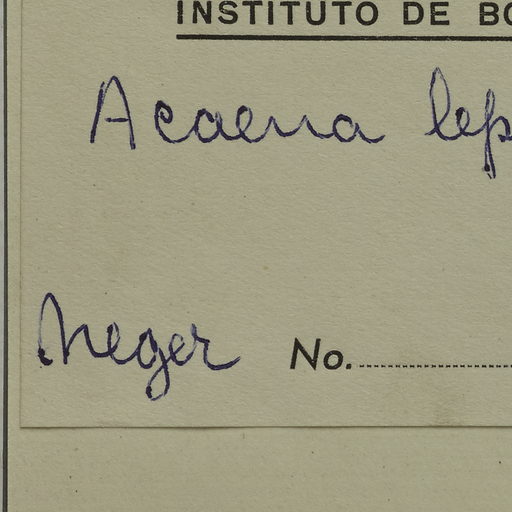 INSTITUTO DE BO
Acaena lep
Neger No.